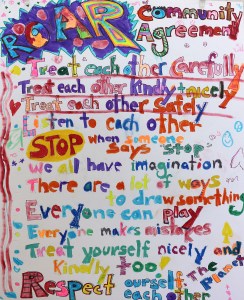 ROAR Community
Agreement
Treat each other Carefully
Treat each other Kindly + nicely
Treat each other Safely
Listen to each other
STOP when someone
says stop
we all have imagination
There are a lot of ways
to draw something
Everyone can play
Everyone makes mistakes
Treat yourself nicely and
kindly too
Respect ourself
each other
the planet